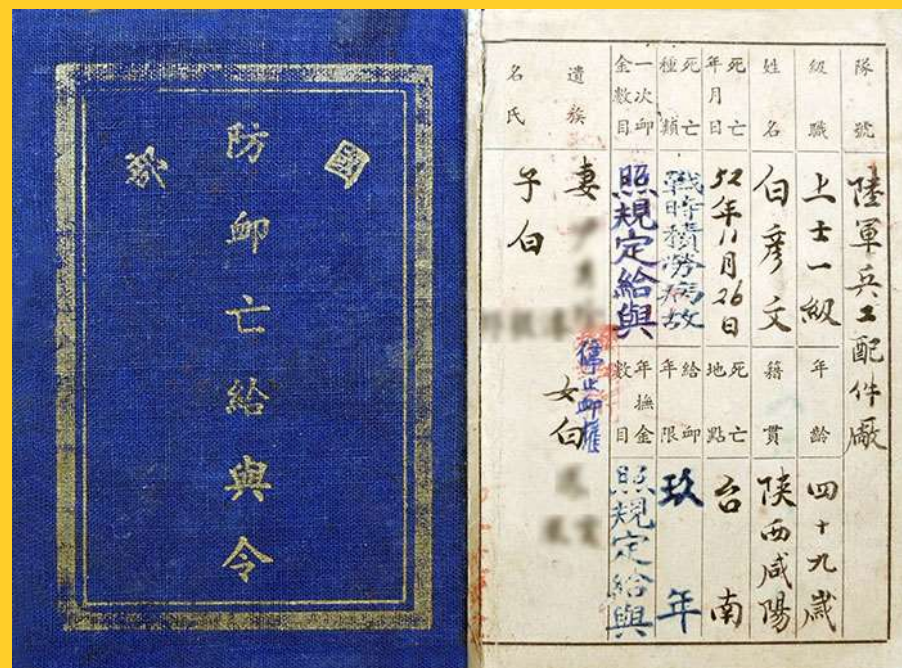 國防部
卹亡給與令
隊號 陸軍兵工配件廠
級職 上士一級 年齡 四十九歲
姓名 白彥文 籍貫 陝西咸陽
死亡年月日 52年11月26日 死亡地點 台南
死亡種類 戰時積勞病故 給卹年限 玖年
一次卹金數目 照規定給與 年撫金數目 照規定給與
遺族 妻 女白
名氏 子白
停止卹權